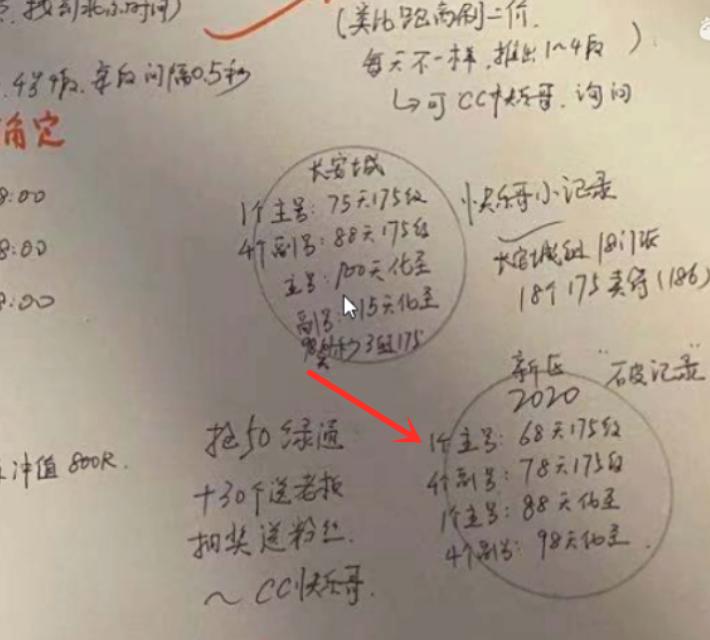 找到北京时间)
(类比距离刷二价.
每天不一样,推出1~4段 )
4字4段.每段间隔0.5秒
↳可CC快乐哥.询问
角定
8:00
8:00
8:00
长安城
1个主号: 75天175级
4个副号: 88天175级
主号: 100天化圣
副号: 115天化圣
3组175
快乐哥小记录
长安城组18门派
18个175卖符(186)
新区 "石皮记录"
2020
1个主号: 68天175级
4个副号: 78天175级
1个主号: 88天化圣
4个副号: 98天化圣.
抢50绿通
+30个送老板
抽奖送粉丝.
~CC快乐哥.
冲值800R.